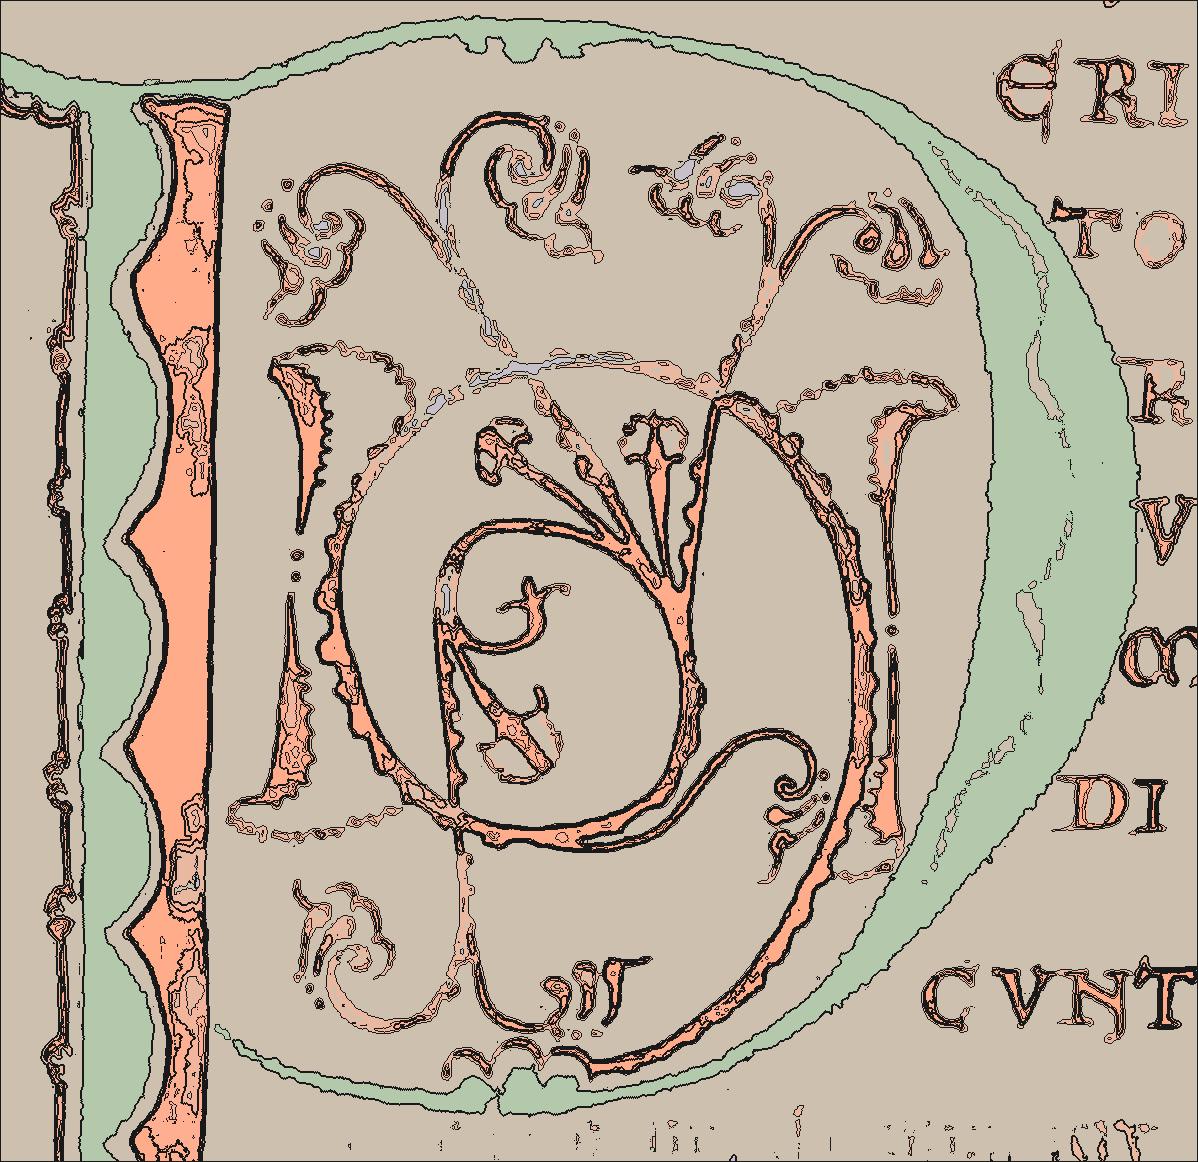 P
ERI
TO
R
V
M
DI
CVNT